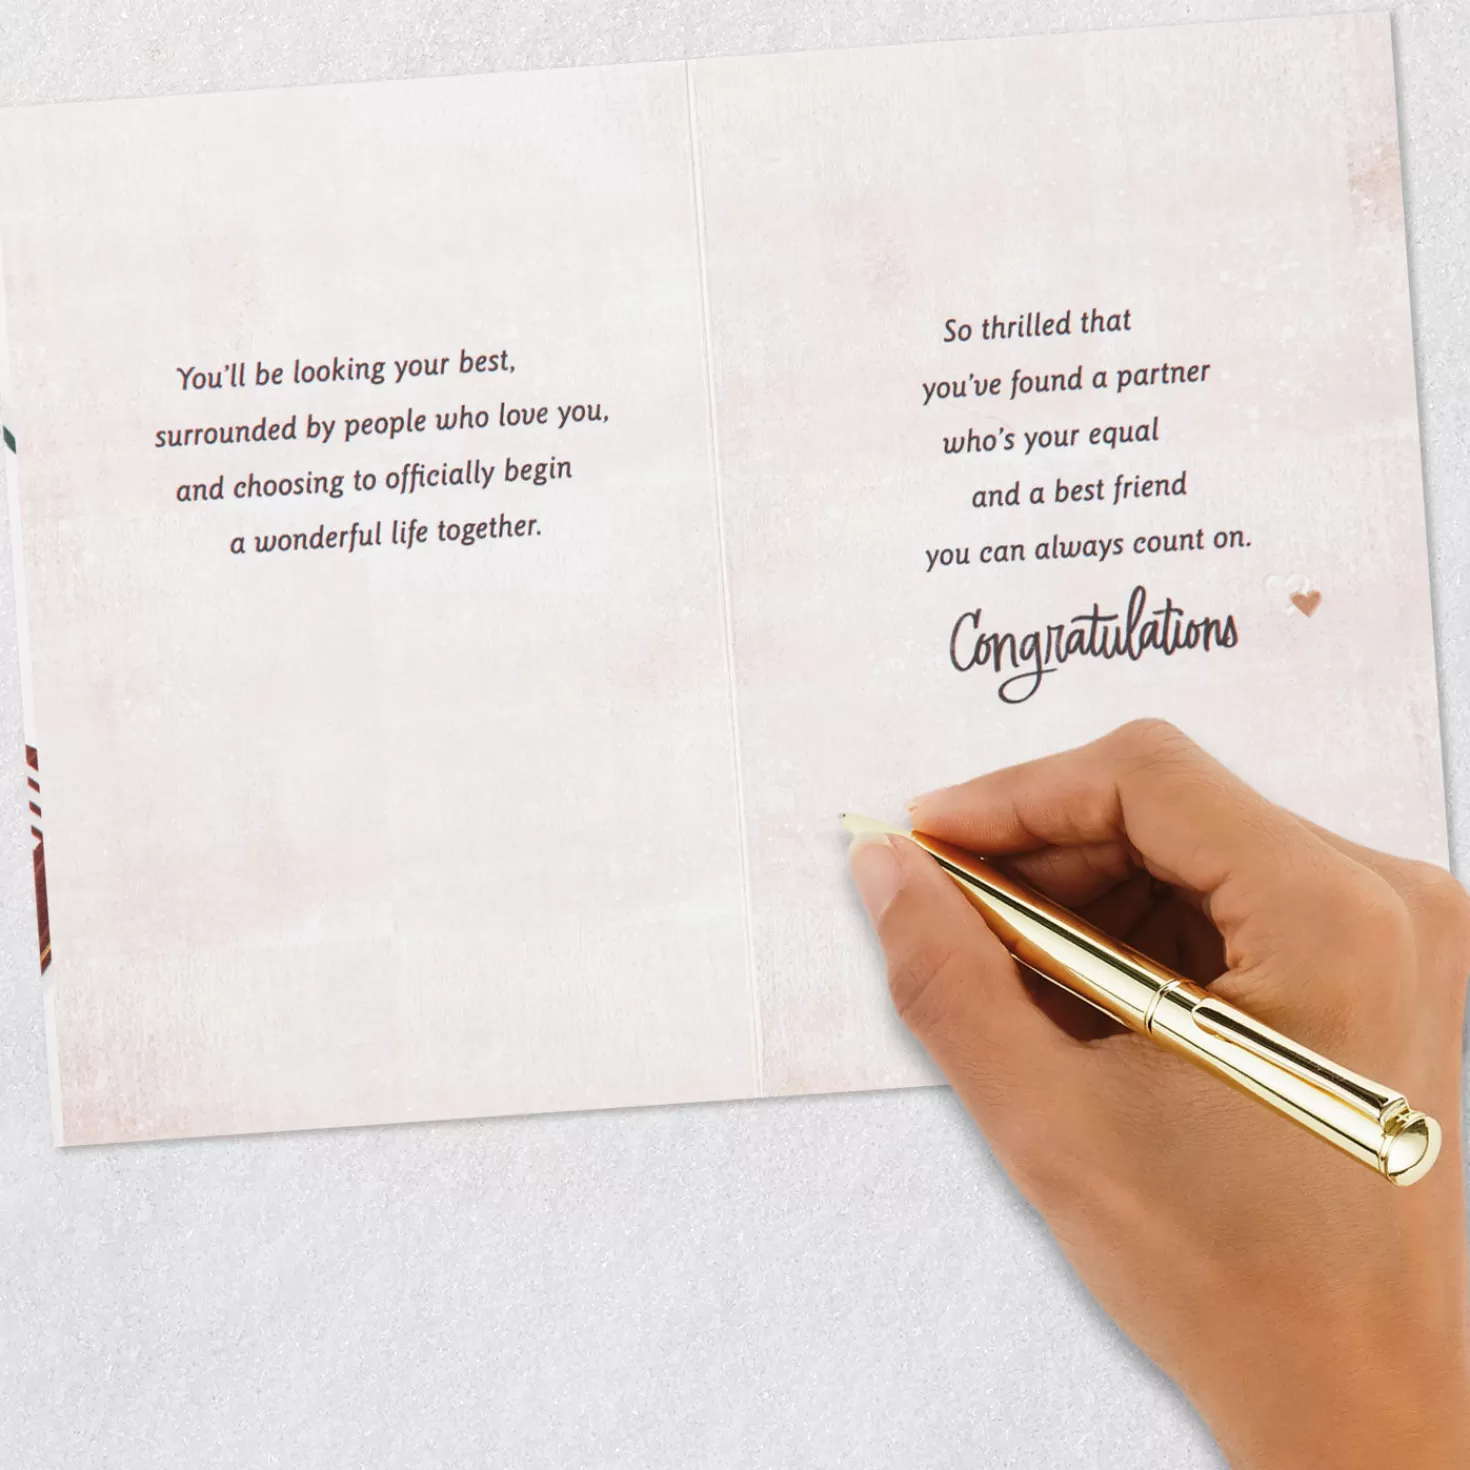 You'll be looking your best,
surrounded by people who love you,
and choosing to officially begin
a wonderful life together.
So thrilled that
you've found a partner
who's your equal
and a best friend
you can always count on.
Congratulations